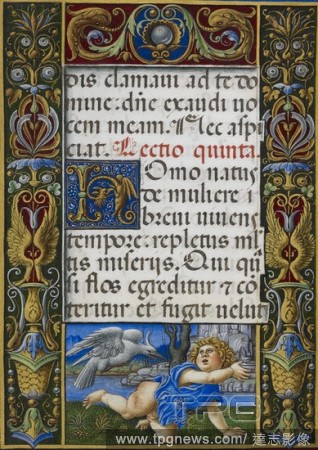 dis clamaui ad te do
mine: dñe exaudi uo
cem meam. Nec aspi
ciat. Lectio quinta.
HOmo natus
de muliere
breui uiuens
tempore: repletus mul
tis miserijs. Qui qua
si flos egreditur et cõ
teritur et fugit uelut
TPG
www.tpgnews.com/ 達志影像